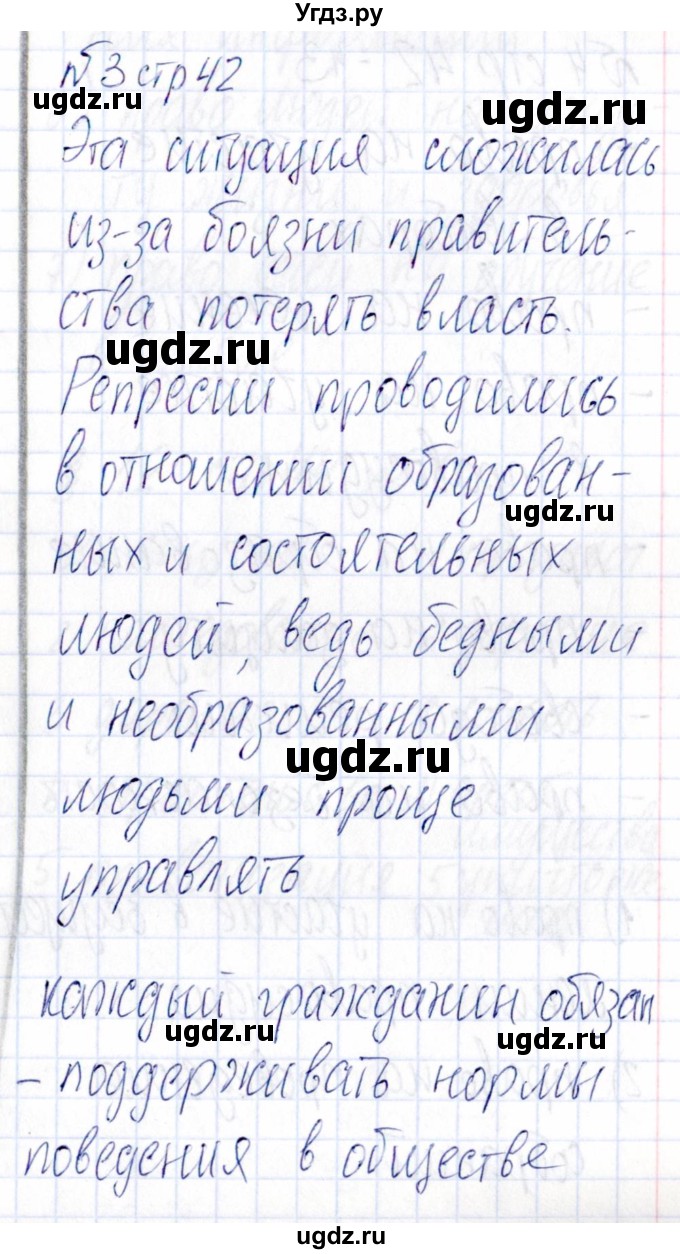 Угдз.ру
№3 стр 42
ugdz.ru ugdz.ru
Эта ситуация сложилась
из-за боязни правитель-
ства потерять власть.
ugdz.ru
Репресии проводились
в отношении образован-
ugdz.ru
ных и состоятельных
людей, ведь бедными
и необразованными
ugdz.ru
людьми проще
управлять
каждый гражданин обязан
ugdz.ru ugdz.ru
- поддерживать нормы
поведения в обществе
ugdz.ru